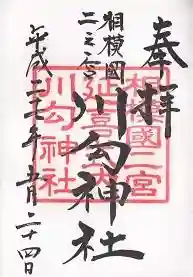 奉拝
相模國
二之宮
川勾神社
平成二十七年五月二十四日
相模國二宮
延喜式内
川勾神社